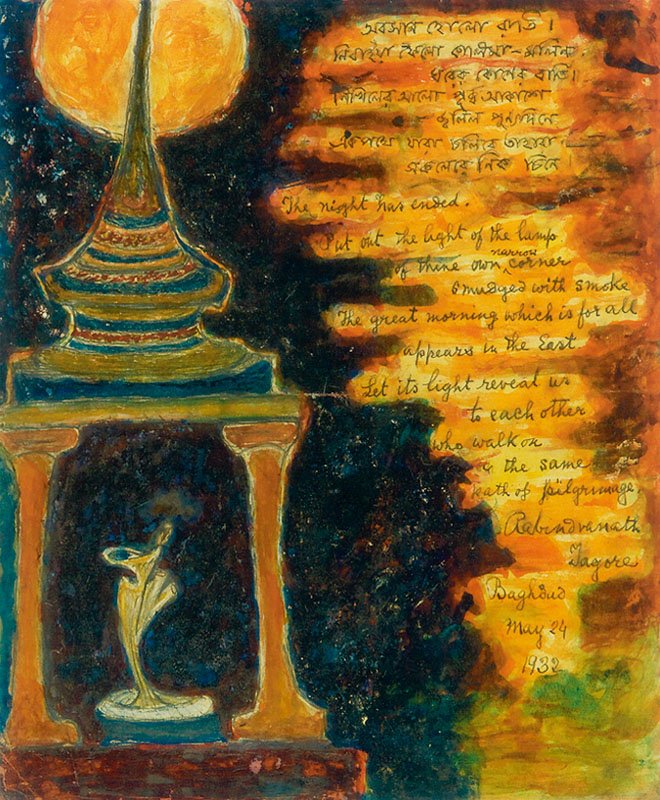 অবসান হোলো রাতি।
নিবাইয়া ফেলো কালিমা-মলিন
ঘরের কোণের বাতি।
নিখিলের আলো পূর্ব্ব আকাশে
জ্বলিল পুণ্যদিনে
একপথে যারা চলিবে তাহারা
সকলেরে নিক্ চিনে
The night has ended.
Put out the light of the lamp
of thine own narrow corner
smudged with smoke
The great morning which is for all
appears in the East
Let its light reveal us
to each other
who walk on
the same
path of pilgrimage.
Rabindranath
Tagore
Baghdad
May 24
1932